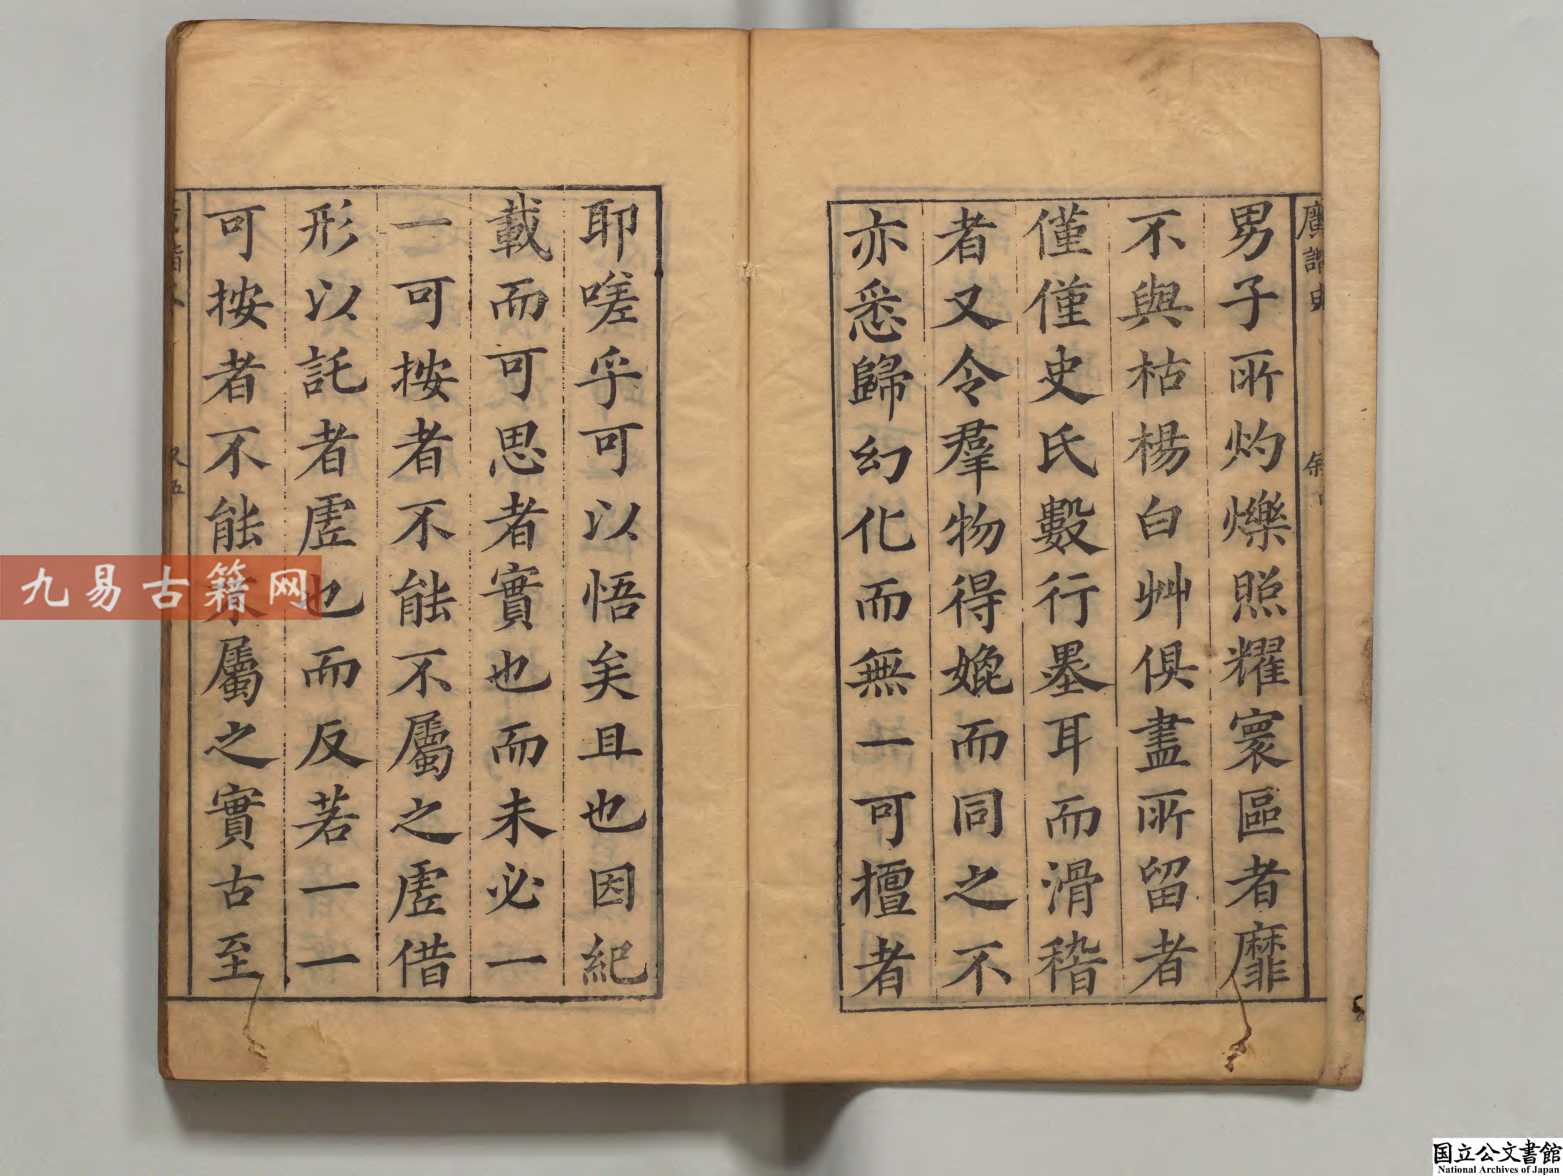 廣諧史
男子所灼爍照耀寰區者靡
不與枯楊白艸俱盡所留者
僅僅史氏數行墨耳而滑稽
者又令羣物得媲而同之不
亦悉歸幻化而無一可擅者
耶嗟乎可以悟矣且也因紀
載而可思者實也而未必一
一可按者不能不屬之虛借
形以託者虛也而反若一一
可按者不能不屬之實古至
九易古籍网
国立公文書館
National Archives of Japan